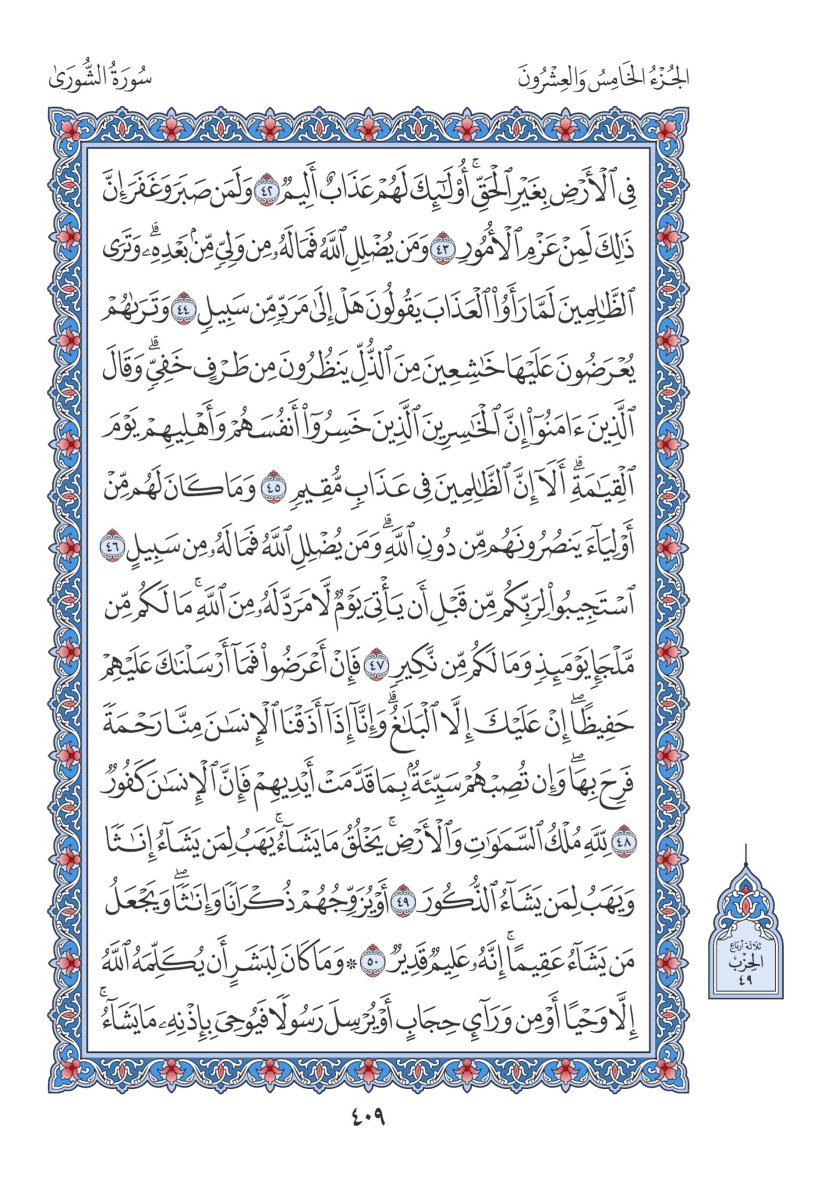 الجُزْءُ الخَامِسُ وَالعِشْرُونَ
سُورَةُ الشُّورَىٰ
فِي ٱلۡأَرۡضِ بِغَيۡرِ ٱلۡحَقِّۚ أُوْلَٰٓئِكَ لَهُمۡ عَذَابٌ أَلِيمٞ ٤٢ وَلَمَن صَبَرَ وَغَفَرَ إِنَّ
ذَٰلِكَ لَمِنۡ عَزۡمِ ٱلۡأُمُورِ ٤٣ وَمَن يُضۡلِلِ ٱللَّهُ فَمَا لَهُۥ مِن وَلِيّٖ مِّنۢ بَعۡدِهِۦۗ وَتَرَى
ٱلظَّٰلِمِينَ لَمَّا رَأَوُاْ ٱلۡعَذَابَ يَقُولُونَ هَلۡ إِلَىٰ مَرَدّٖ مِّن سَبِيلٖ ٤٤ وَتَرَىٰهُمۡ
يُعۡرَضُونَ عَلَيۡهَا خَٰشِعِينَ مِنَ ٱلذُّلِّ يَنظُرُونَ مِن طَرۡفٍ خَفِيّٖۗ وَقَالَ
ٱلَّذِينَ ءَامَنُوٓاْ إِنَّ ٱلۡخَٰسِرِينَ ٱلَّذِينَ خَسِرُوٓاْ أَنفُسَهُمۡ وَأَهۡلِيهِمۡ يَوۡمَ
ٱلۡقِيَٰمَةِۗ أَلَآ إِنَّ ٱلظَّٰلِمِينَ فِي عَذَابٖ مُّقِيمٖ ٤٥ وَمَا كَانَ لَهُم مِّنۡ
أَوۡلِيَآءَ يَنصُرُونَهُم مِّن دُونِ ٱللَّهِۗ وَمَن يُضۡلِلِ ٱللَّهُ فَمَا لَهُۥ مِن سَبِيلٍ ٤٦
ٱسۡتَجِيبُواْ لِرَبِّكُم مِّن قَبۡلِ أَن يَأۡتِيَ يَوۡمٞ لَّا مَرَدَّ لَهُۥ مِنَ ٱللَّهِۚ مَا لَكُم مِّن
مَّلۡجَإٖ يَوۡمَئِذٖ وَمَا لَكُم مِّن نَّكِيرٖ ٤٧ فَإِنۡ أَعۡرَضُواْ فَمَآ أَرۡسَلۡنَٰكَ عَلَيۡهِمۡ
حَفِيظًاۖ إِنۡ عَلَيۡكَ إِلَّا ٱلۡبَلَٰغُۗ وَإِنَّآ إِذَآ أَذَقۡنَا ٱلۡإِنسَٰنَ مِنَّا رَحۡمَةٗ
فَرِحَ بِهَاۖ وَإِن تُصِبۡهُمۡ سَيِّئَةُۢ بِمَا قَدَّمَتۡ أَيۡدِيهِمۡ فَإِنَّ ٱلۡإِنسَٰنَ كَفُورٞ
٤٨ لِّلَّهِ مُلۡكُ ٱلسَّمَٰوَٰتِ وَٱلۡأَرۡضِۚ يَخۡلُقُ مَا يَشَآءُۚ يَهَبُ لِمَن يَشَآءُ إِنَٰثٗا
وَيَهَبُ لِمَن يَشَآءُ ٱلذُّكُورَ ٤٩ أَوۡ يُزَوِّجُهُمۡ ذُكۡرَانٗا وَإِنَٰثٗاۖ وَيَجۡعَلُ
مَن يَشَآءُ عَقِيمًاۚ إِنَّهُۥ عَلِيمٞ قَدِيرٞ ٥٠ * وَمَا كَانَ لِبَشَرٍ أَن يُكَلِّمَهُ ٱللَّهُ
إِلَّا وَحۡيًا أَوۡ مِن وَرَآيِٕ حِجَابٍ أَوۡ يُرۡسِلَ رَسُولٗا فَيُوحِيَ بِإِذۡنِهِۦ مَا يَشَآءُۚ
ثلاثة أرباع
الحِزْب
٤٩
٤٠٩